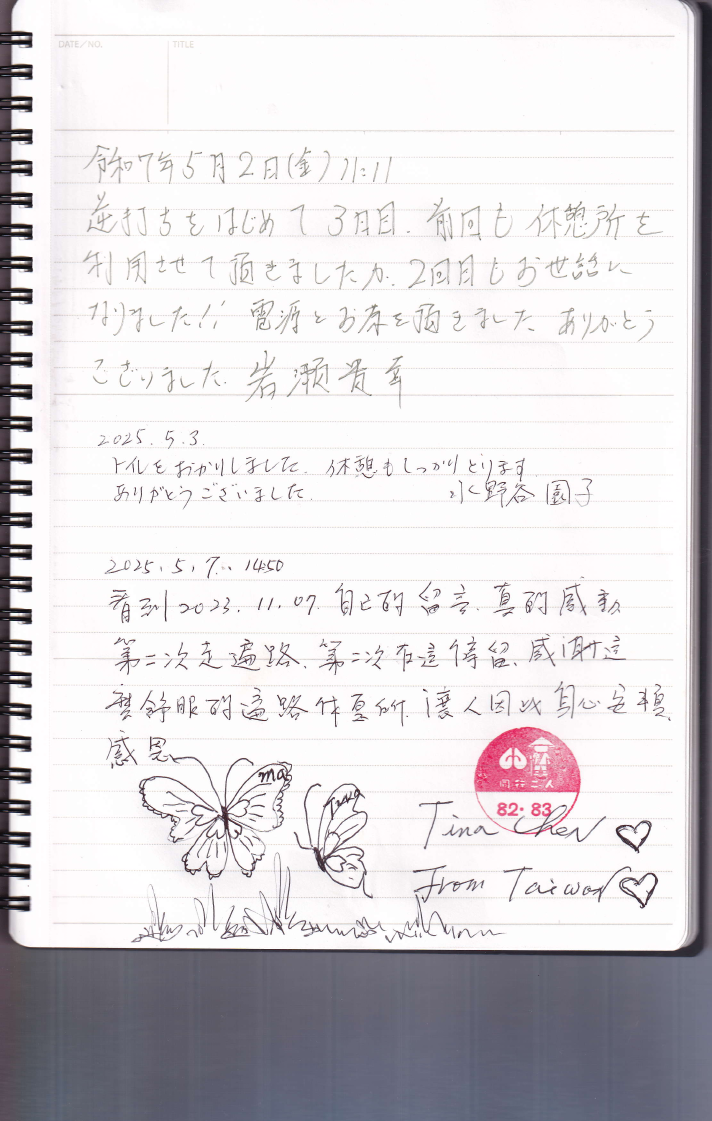 DATE/NO. TITLE
令和7年5月2日(金)11:11
逆打ちをはじめて3日目、前回も休憩所を
利用させて頂きましたが、2回目もお世話に
なりました!! 電源とお茶を頂きました。ありがとう
ございました。岩瀬貴幸
2025.5.3.
トイレをおかりしました。休憩もしっかりとります。
ありがとうございました。 水野谷 園子
2025.5.7.. 14:50
看到2023.11.07.自己的留言,真的感動
第二次走遍路,第二次在這停留,感謝這
舒服的遍路休憩所,讓人因此身心安頓,
感恩
ma
Tina
同行二人
82・83
Tina Chen
From Taiwan